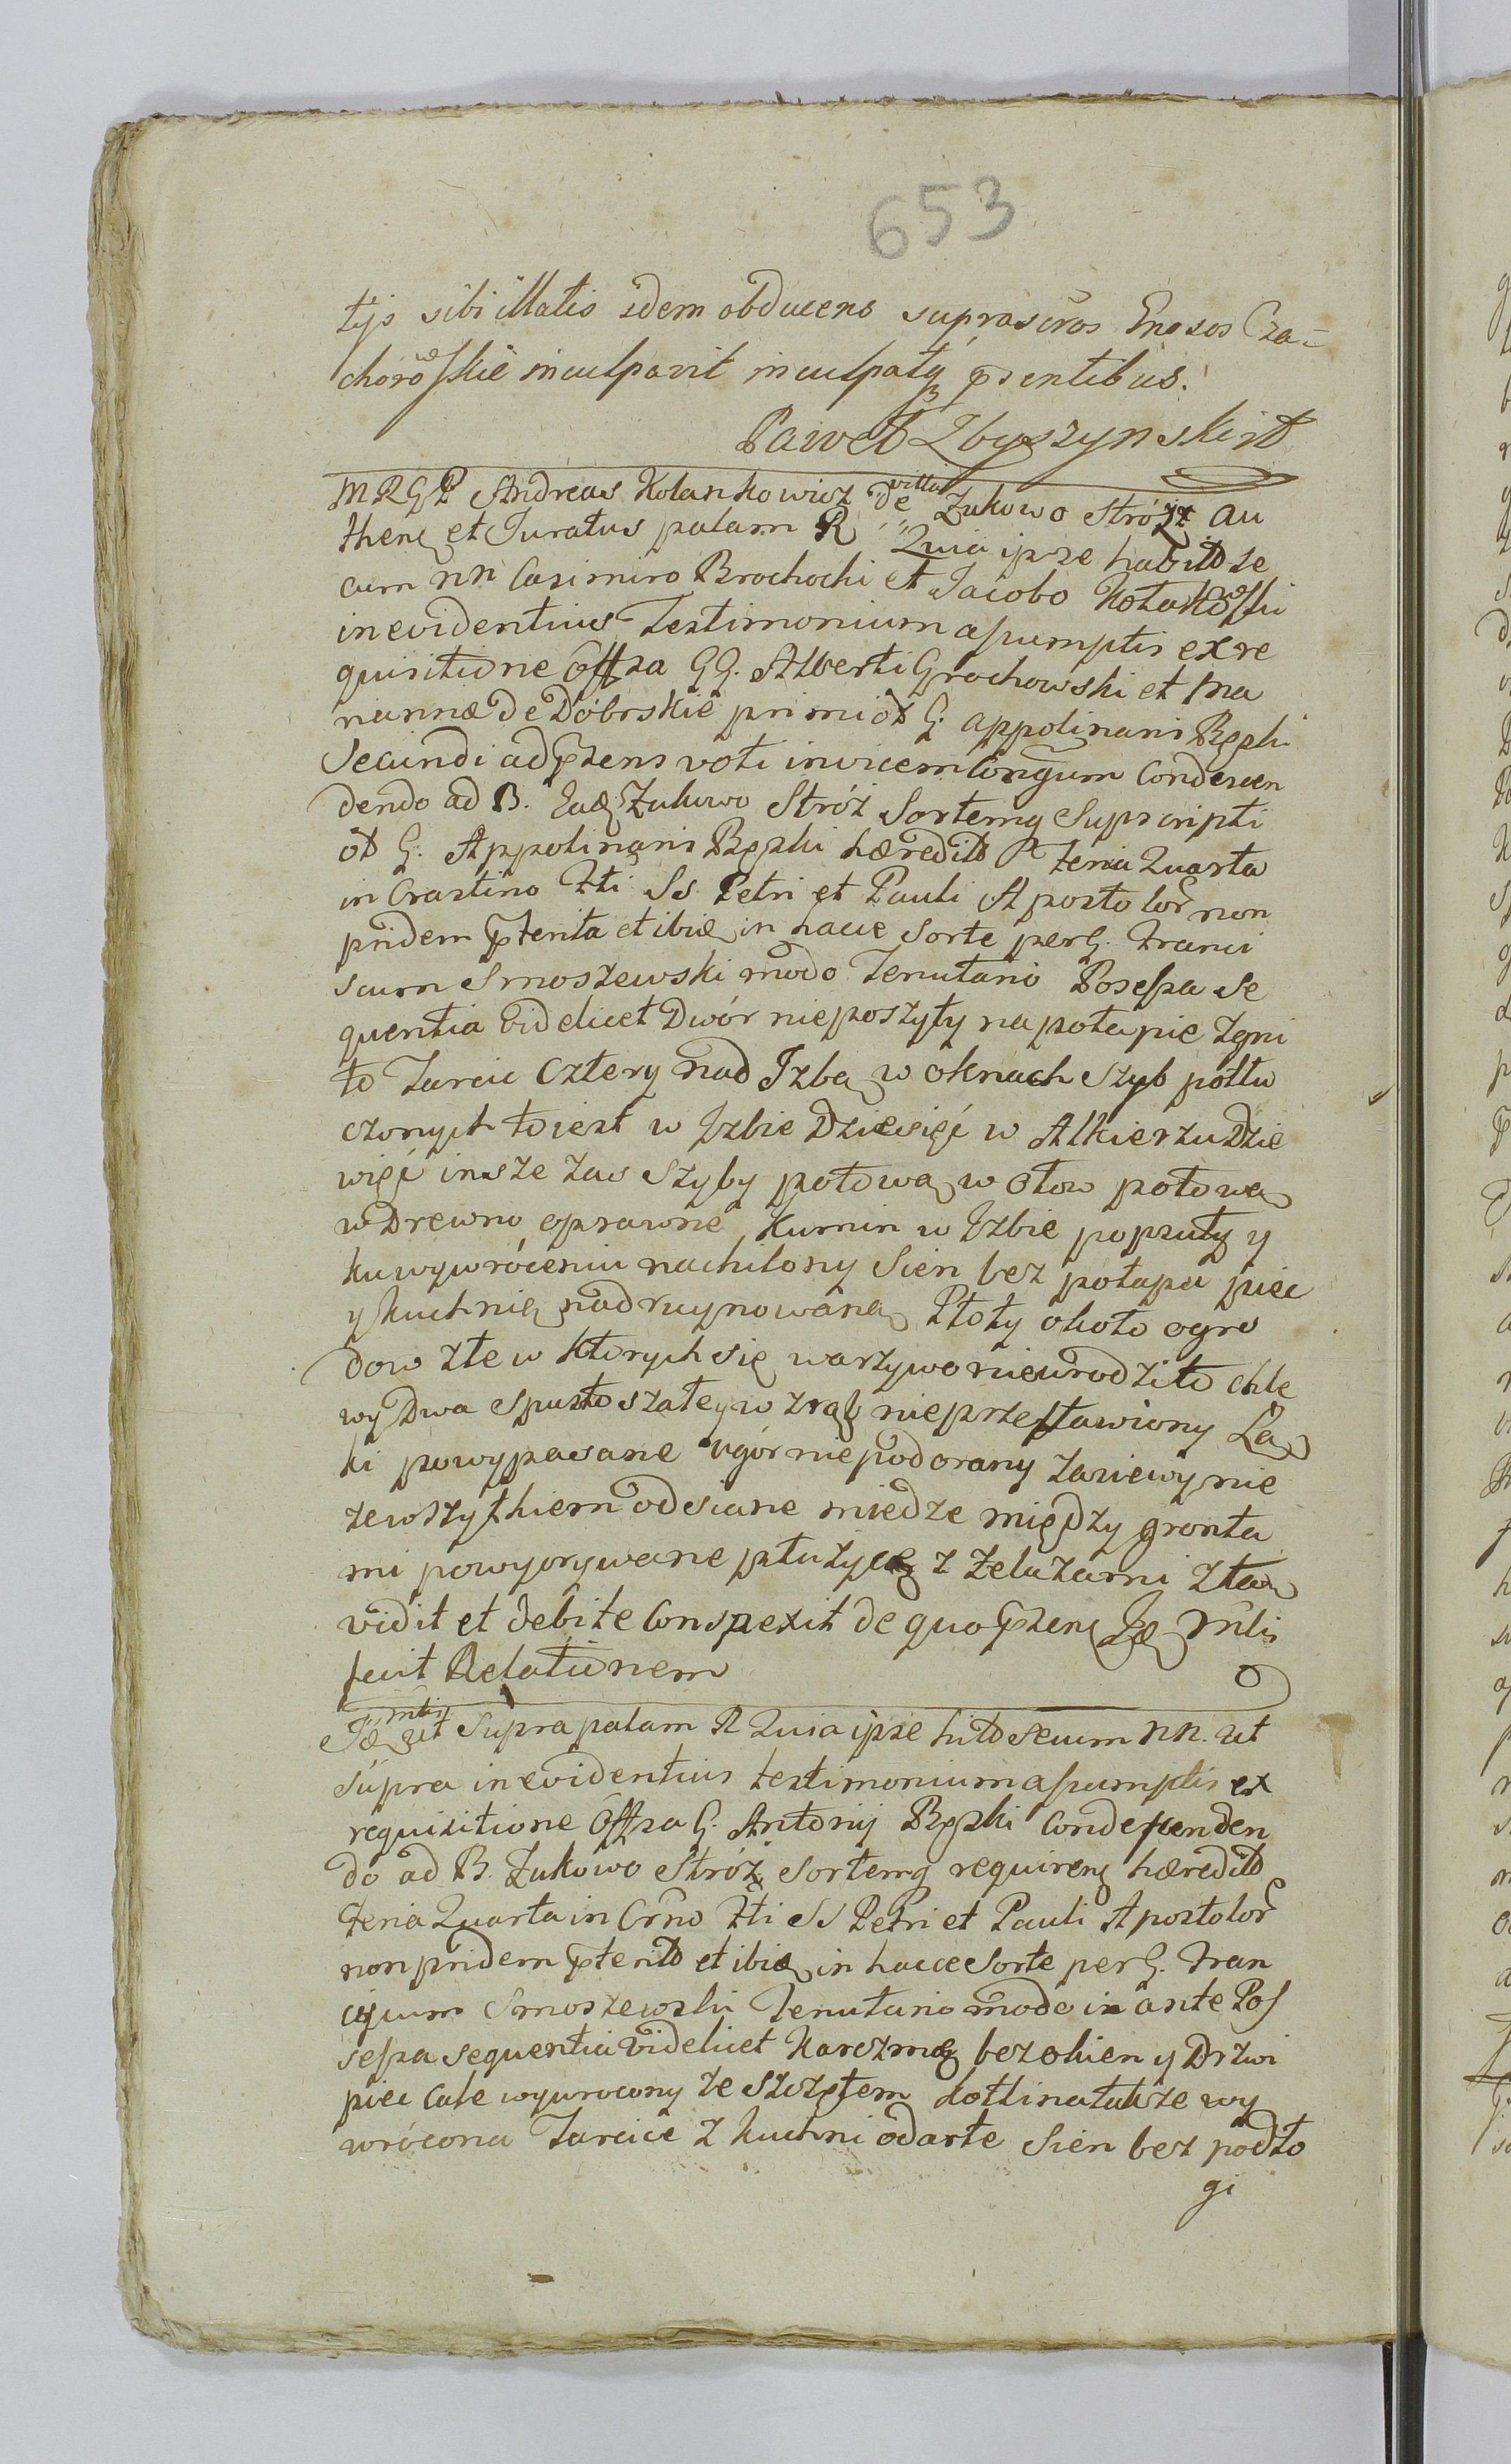 653
tys sibi illatis idem obducens suprascros Gnosos Cza=
chorowskie inculpavit inculpatq psentibus.
Paweł Zbyszynski
MRGP Andreas Kolankowicz de villa Zukowo Stróż au
then et Juratus palam R Quia ipse habito se
cum nn Casimiro Brochocki et Jacobo Kołakowski
in evidentius Testimonium assumptis ex re
quisitione Offsa GG. Alberti Grochowski et Ma
riannæ de Dobrskie primi ot G. Appolinaris Rzeski
Secundi ad psens voti invicem Congum Condescen
dendo ad B. Zukowo Stróż Sortemq Supscripti
ot G. Appolinaris Rzeski hæredit feria Quarta
in Crastino fti Ss. Petri et Pauli Apostolor non
pridem pterita et ibidę in hacce Sorte per G. Franci
scum Smoszewski modo Tenutario Possessa Se
quentia Videlicet Dwór nieposzyty na połapie zgni
to Tarcic Cztery nad Izbą w oknach szyb potłu
czonych to iest w Izbie Dziewięć w Alkierzu Dzie
więć insze zas Szyby połowa w Ołow połowa
w Drewno oprawne Kumin w Izbie popsuty y
ku wywróceniu nachilony Sien bez połapu piec
y kuchnię nadruynowaną Płoty około ogro
dow złe w ktorych się warzywo nieurodziło chle
wy Dwa Spustoszałe y w zrąb nieprzestawiony Łą
ki powypasane ugór niepodorany zasiewy nie
zewszytkiem odsiane miedze między gronta
mi powyorywane płużycę z żelazami złą
vidit et debite Conspexit de quo psens Idę Mlis
fecit Relationem
Idę mlis ut Supra palam R Quia ipse hito secum nn. ut
supra in evidentius testimonium assumptis ex
requisitione Offsa G. Antonij Rzeski Condescenden
do ad B. Zukowo Stróż Sortemq requirens hæredit
feria Quarta in Crno fti Ss Petri et Pauli Apostolor
non pridem pterito et ibidę in hacce Sorte per G. Fran
ciscum Smoszewski Tenutario modo in ante Pos
sessa sequentia Videlicet Karczmę bez okien y Drzwi
piec Cale wywrocony ze szczętem kotlina także wy
wrócona Tarcice z kuchni odarte Sien bez podło
gi